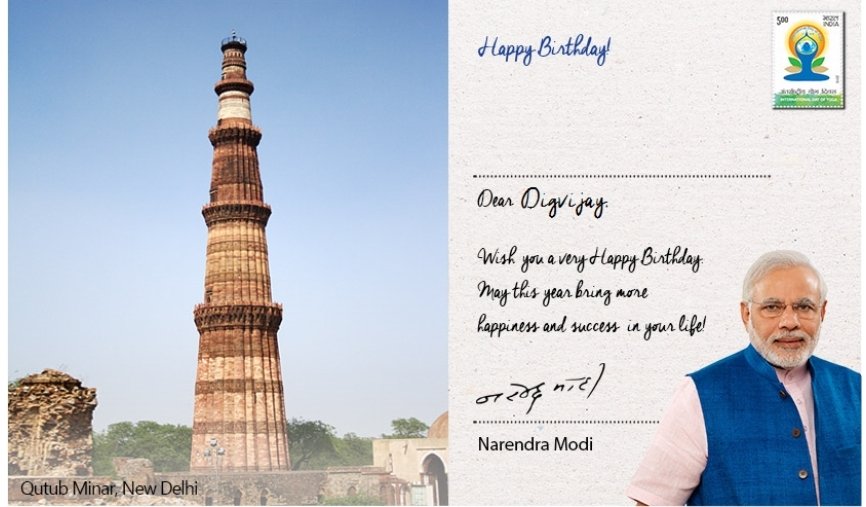 Happy Birthday!
5.00 भारत
INDIA
अंतर्राष्ट्रीय योग दिवस
INTERNATIONAL DAY OF YOGA
Dear Digvijay,
Wish you a very Happy Birthday.
May this year bring more
happiness and success in your life!
नरेन्द्र मोदी
Narendra Modi
Qutub Minar, New Delhi